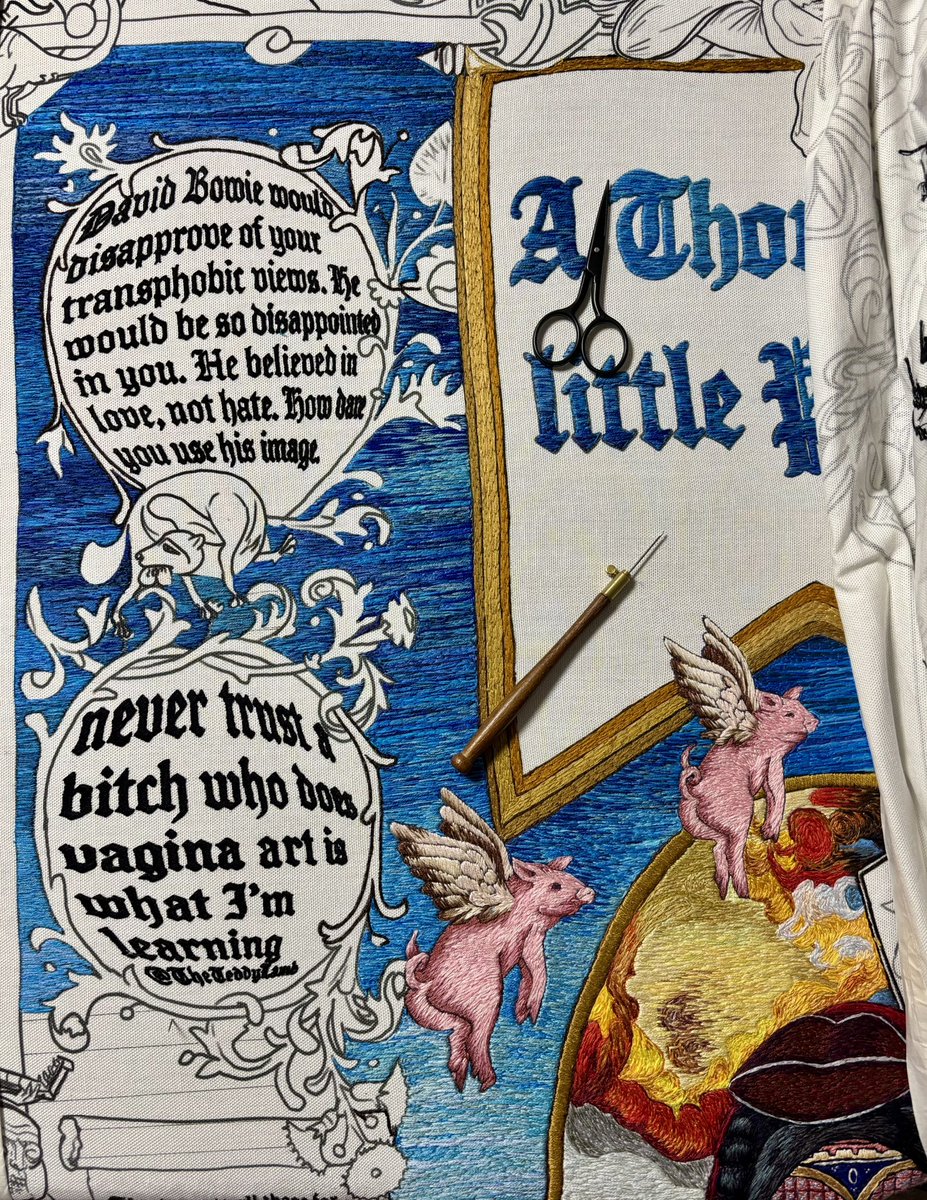 David Bowie would
disapprove of your
transphobic views. He
would be so disappointed
in you. He believed in
love, not hate. How dare
you use his image.
never trust a
bitch who does
vagina art is
what I'm
learning
@TheTeddyLamb
A Tho
little